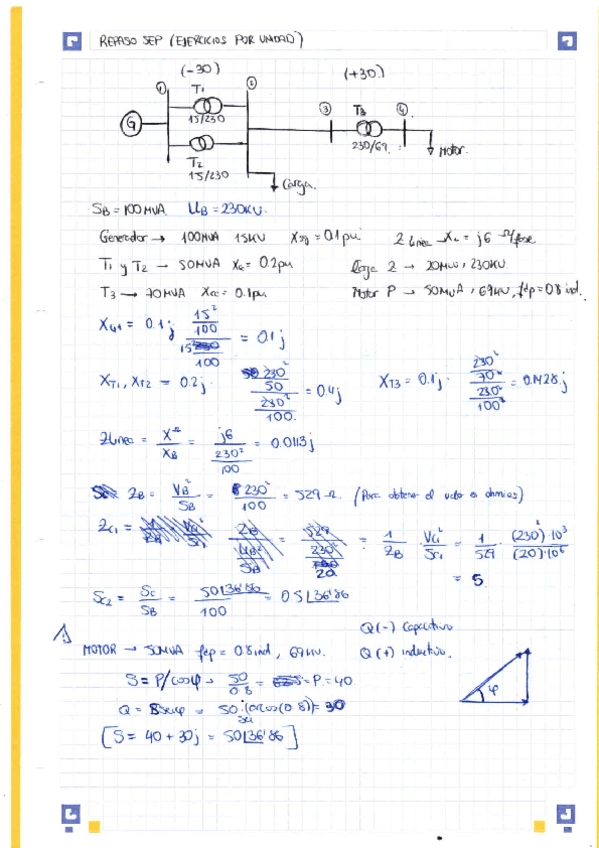 REPASO SEP (EJERCICIOS POR UNIDAD)
(-30) (+30)
1 T1 2 3 T3 4
15/230
G
230/69
Motor.
T2
15/230
Carga.
SB = 100 MVA. UB = 230 KV.
Generador → 100 MVA 15 KV = 0.1 pu Z Linea → XL = j6 Ω/fase
T1 y T2 → 50 MVA Xcc = 0.2 pu 2 → 20 MVA, 230 KV
T3 → 70 MVA Xcc = 0.1 pu Motor P → 50 MVA, 69 KV, fdp = 0.8 ind.
= 0.1 j 15² / 100 / 100 = 0.1 j
XT1, XT2 = 0.2 j · 230² / 50 / 230² / 100 = 0.4 j XT3 = 0.1 j · 230² / 70 / 230² / 100 = 0.1428 j
Z Linea = X^Ω / XB = j6 / 230² / 100 = 0.0113 j
ZB = VB² / SB = 230² / 100 = 529 Ω. (Para obtener el valor en ohmios)
ZC1 = = = 1 / ZB · VC1² / SC1 = 1 / 529 · (230)² · 10³ / (20) · 10⁶
= 5
SC2 = SC / SB = 50∟36'86 / 100 = 0.5∟36'86
Q (-) Capacitivo
MOTOR → 50 MVA fdp = 0.8 ind, 69 KV. Q (+) inductivo.
S = P/cosφ → 50 / 0.8 = = P = 40
φ
Q = = 50 · (arcos(0.8)) = 30
[S = 40 + 30j = 50∟36'86]